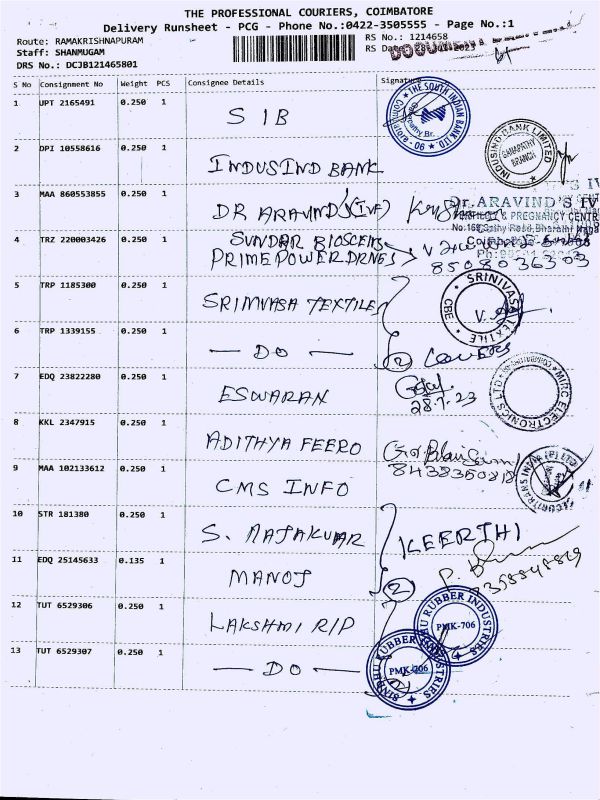 THE PROFESSIONAL COURIERS, COIMBATORE
Delivery Runsheet - PCG - Phone No.:0422-3505555 - Page No.:1
Route: RAMAKRISHNAPURAM
RS No.: 1214658
Staff: SHANMUGAM
RS Date
DRS No.: DCJB121465801
S No Consignment No Weight PCS Consignee Details Signature
1 UPT 2165491 0.250 1 SIB
THE SOUTH INDIAN BANK LTD.
2 DPI 10558616 0.250 1 INDUSIND BANK
INDUSIND BANK LIMITED
GANAPATHY
BRANCH
3 MAA 860553855 0.250 1 DR ARAVIND'S (IVF)
Dr.ARAVIND'S IV
& PREGNANCY CENTR
4 TRZ 220003426 0.250 1 SUNDAR
PRIME POWER
8508036303
5 TRP 1185300 0.250 1 SRINIVASA TEXTILES
SRINIVASA TEXTILE
CBE
6 TRP 1339155 0.250 1 — DO —
2 COVERS
7 EDQ 23822280 0.250 1 ESWARAN
28.7.23
MIRC ELECTRONICS LTD
8 KKL 2347915 0.250 1 ADITHYA FEERO
9 MAA 102133612 0.250 1 CMS INFO
10 STR 181380 0.250 1 S.
KEERTHI
11 EDQ 25145633 0.135 1 MANOJ
2
12 TUT 6529306 0.250 1 LAKSHMI RIP
SINDHU RUBBER INDUSTRIES
PMK-706
13 TUT 6529307 0.250 1 — DO —
SINDHU RUBBER INDUSTRIES
PMK-706